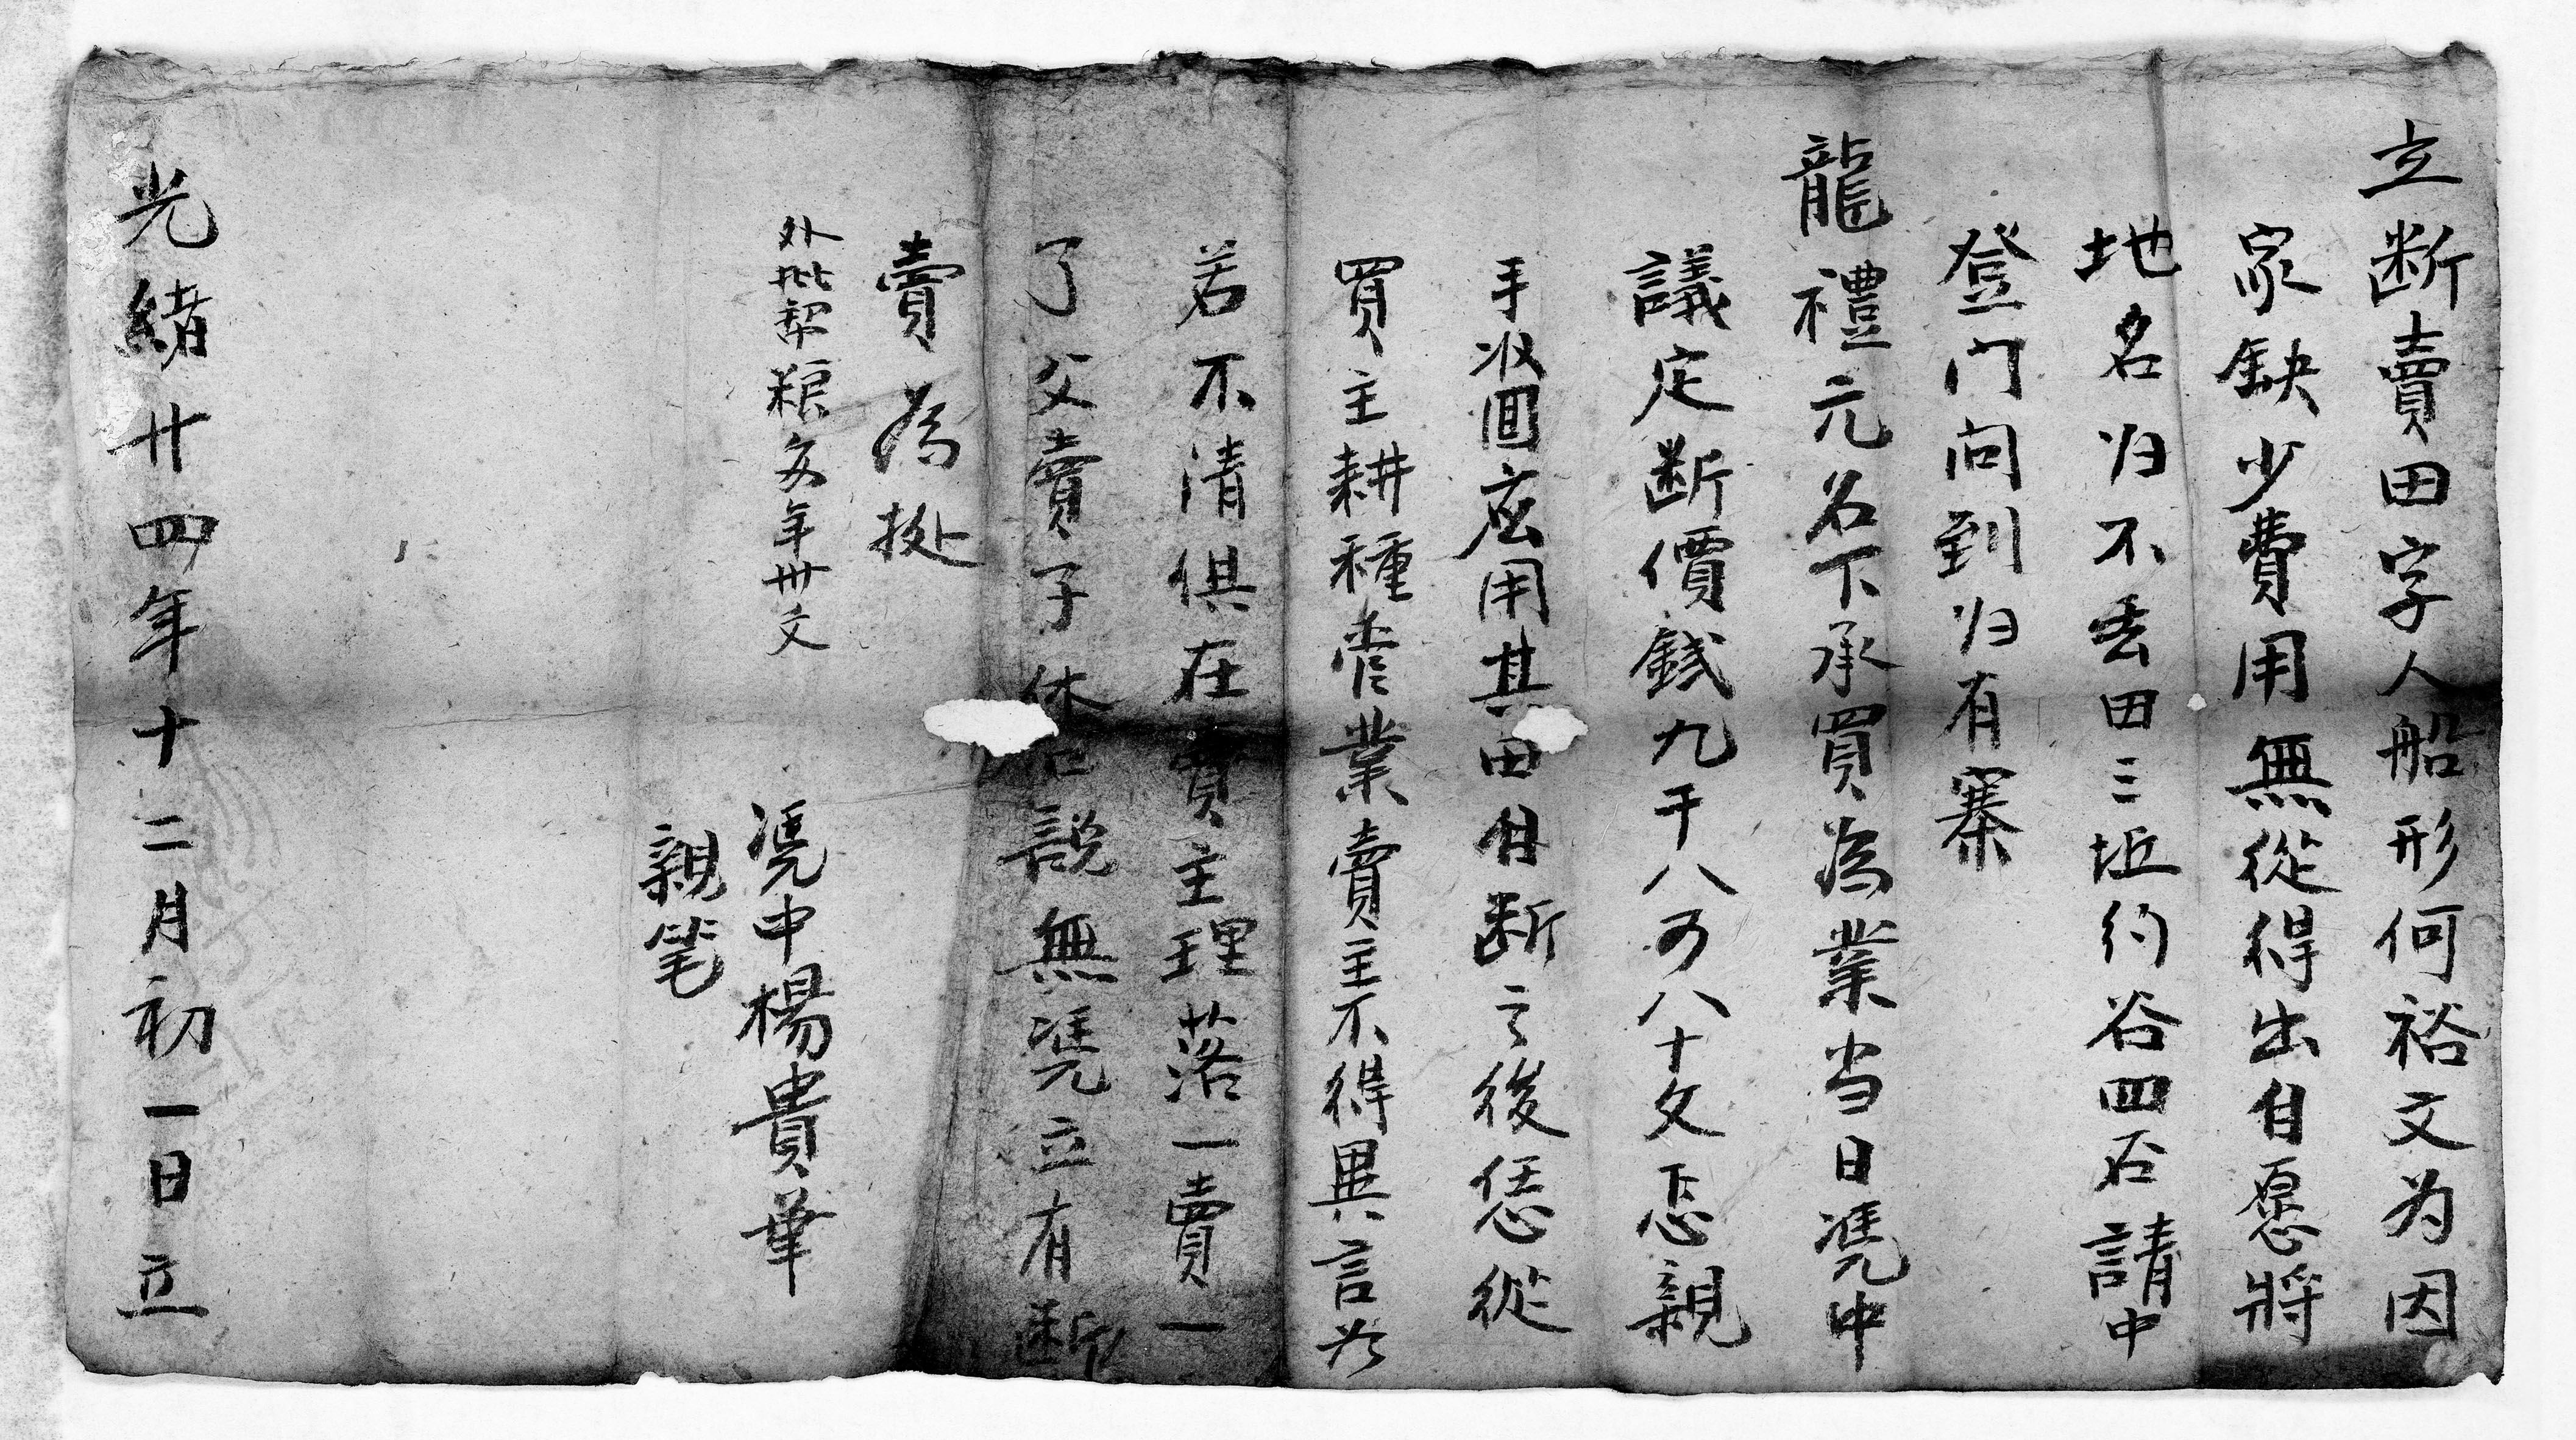 立断賣田字人船形何裕文为因
家缺少費用無從得出自愿將
地名归不丢田三坵約谷四石請中
登门问到归有寨
龍禮元名下承買為業当日凴中
議定断價錢九千八百八十文恁親
手收囬應用其田自断之後恁從
買主耕種管業賣主不得異言
若不清俱在賣主理落一賣一
了父賣子休 説無凴立有断
賣為挻
外批契粮每年卅文
凴中楊貴華
親笔
光緒廿四年十二月初一日立